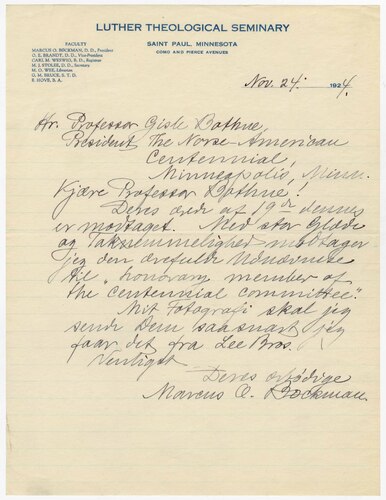 LUTHER THEOLOGICAL SEMINARY
SAINT PAUL, MINNESOTA
COMO AND PIERCE AVENUES
FACULTY
MARCUS O. BOCKMAN, D. D., President
O. E. BRANDT, D. D., Vice-President
CARL M. WESWIG, B. D., Registrar
M. J. STOLEE, D. D., Secretary
M. O. WEE, Librarian
G. M. BRUCE, S. T. D.
E. HOVE, B. A.
Nov. 24. 1924.
Hr. Professor Gisle Bothne,
President, the Norse-American
Centennial,
Minneapolis, Minn.
Kjære Professor Bothne!
Deres ærede af 19de dennes
er modtaget. Med stor Glæde
og Taknemmelighed modtager
jeg den ærefulde Udnævnelse
til "honorary member of
the centennial committee".
Mit Fotografi skal jeg
sende Dem saasnart jeg
faar det fra Lee Bros.
Venligst
Deres ærbødige
Marcus O. Bockman.